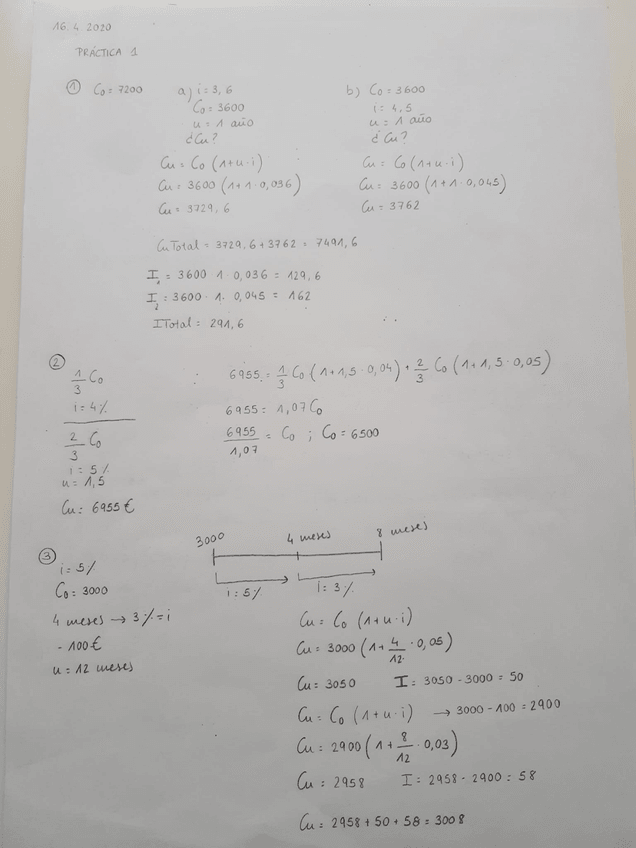 16. 4. 2020
PRÁCTICA 1
① C₀ = 7200
a) i = 3,6
C₀ = 3600
u = 1 año
¿Cu?
Cu = C₀ (1+u·i)
Cu = 3600 (1+1·0,036)
Cu = 3729,6
b) C₀ = 3600
i = 4,5
u = 1 año
¿Cu?
Cu = C₀ (1+u·i)
Cu = 3600 (1+1·0,045)
Cu = 3762
Cu Total = 3729,6 + 3762 = 7491,6
I₁ = 3600 · 1 · 0,036 = 129,6
I₂ = 3600 · 1 · 0,045 = 162
I Total = 291,6
②
1/3 C₀
i = 4%
2/3 C₀
i = 5%
u = 1,5
Cu = 6955 €
6955 = 1/3 C₀ (1+1,5·0,04) + 2/3 C₀ (1+1,5·0,05)
6955 = 1,07 C₀
6955/1,07 = C₀ ; C₀ = 6500
③
i = 5%
C₀ = 3000
4 meses → 3% = i
- 100 €
u = 12 meses
3000 4 meses 8 meses
i = 5% i = 3%
Cu = C₀ (1+u·i)
Cu = 3000 (1 + 4/12 · 0,05)
Cu = 3050 I = 3050 - 3000 = 50
Cu = C₀ (1+u·i) → 3000 - 100 = 2900
Cu = 2900 (1 + 8/12 · 0,03)
Cu = 2958 I = 2958 - 2900 = 58
Cu = 2958 + 50 + 58 = 3008